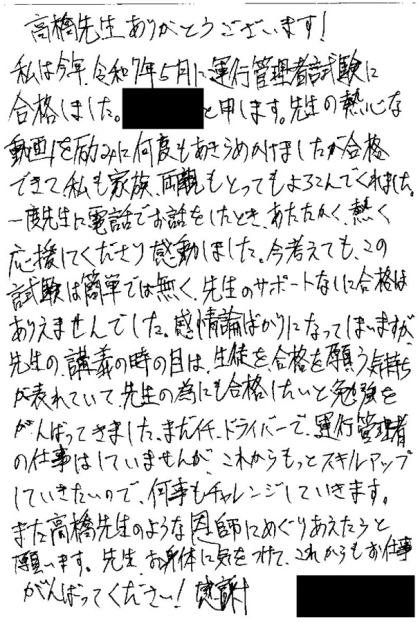 高橋先生ありがとうございます!
私は今年、令和7年5月に運行管理者試験に
合格しました。と申します。先生の熱心な
動画を励みに何度もあきらめかけましたが合格
できて、私も家族、両親もとってもよろこんでくれました。
一度先生に電話でお話をしたとき、あたたかく、熱く
応援してくださり感動しました。今考えても、この
試験は簡単では無く、先生のサポートなしに合格は
ありえませんでした。感情論ばかりになってしまいますが、
先生の、講義の時の目は、生徒を合格を願う気持ち
が表れていて、先生の為にも合格したいと勉強を
がんばってきました。まだイチ、ドライバーで、運行管理者
の仕事はしていませんが、これからもっとスキルアップ
していきたいので、何事もチャレンジしていきます。
また高橋先生のような恩師にめぐりあえたらと
願います。先生、お身体に気をつけて、これからもお仕事
がんばってください! 感謝